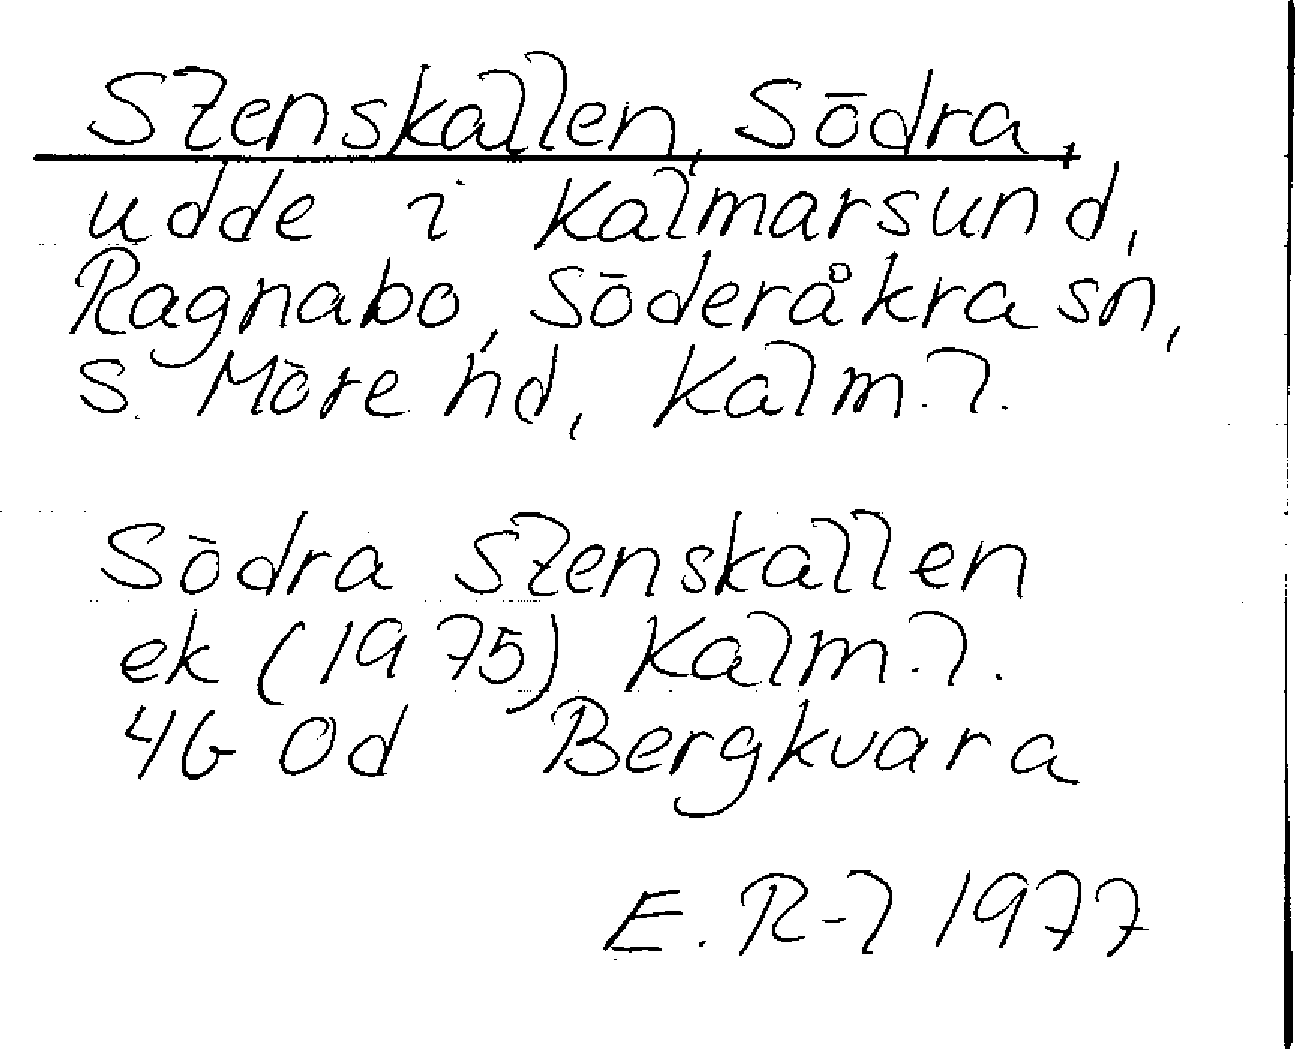 Stenskallen, Södra,
udde i Kalmarsund,
Ragnabo, Söderåkra sn,
S. Möre hd, Kalm. l.
Södra Stenskallen
ek (1975) Kalm. l.
4G 0d Bergkvara
E. R-l 1977